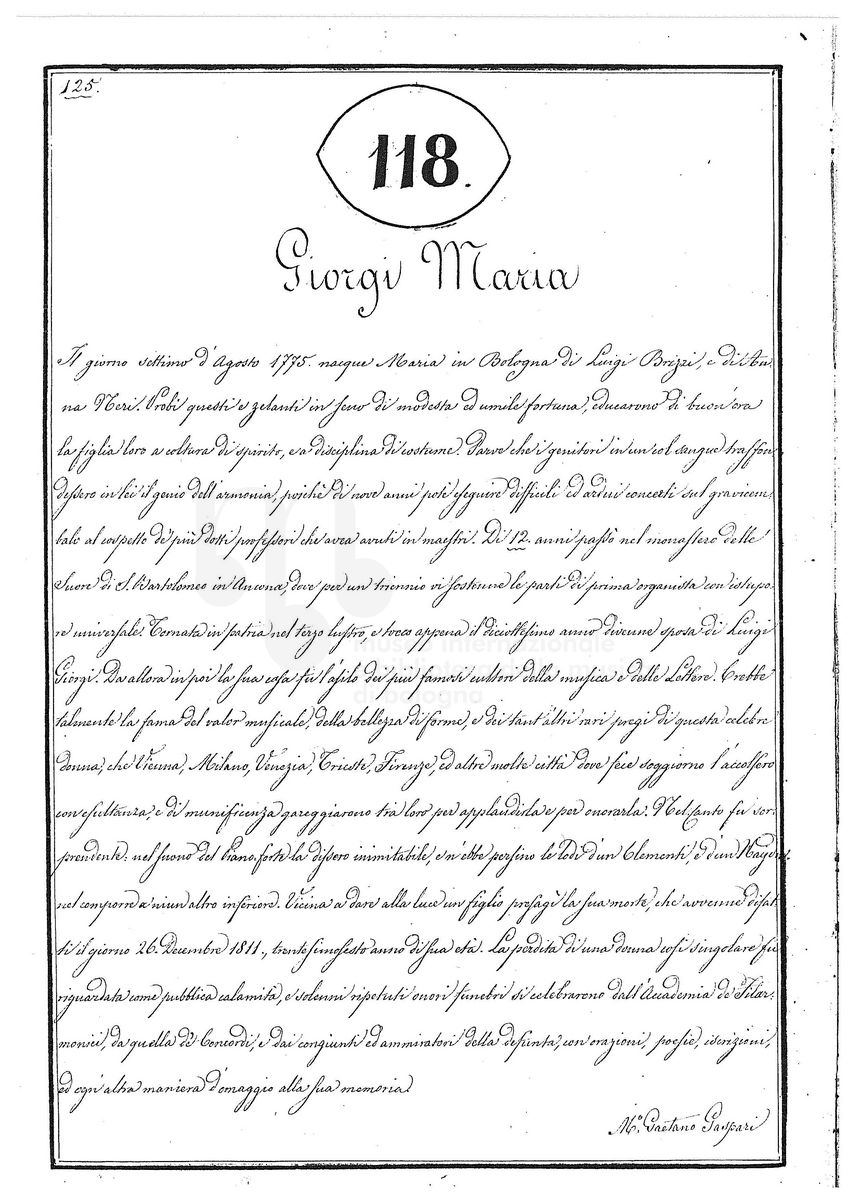 125.
118.
Giorgi Maria
Il giorno settimo d'Agosto 1775. nacque Maria in Bologna di Luigi Brizzi, e di An-
na Neri. Probi questi e zelanti in seno di modesta ed umile fortuna, educarono di buon'ora
la figlia loro a coltura di spirito, e a disciplina di costume. Parve che i genitori in un col sangue trasfon-
dessero in lei il genio dell'armonia, poichè di nove anni potè eseguire difficili ed ardui concerti sul gravicem-
balo al cospetto de' più dotti professori che avea avuti in maestri. Di 12. anni passò nel monastero delle
Suore di S. Bartolomeo in Ancona, dove per un triennio vi sostenne le parti di prima organista con istupo-
re universale. Tornata in patria nel terzo lustro, e tocco appena il diciottesimo anno divenne sposa di Luigi
Giorgi. Da allora in poi la sua casa fu l'asilo dei più famosi cultori della musica e delle Lettere. Crebbe
talmente la fama del valor musicale, della bellezza di forme, e dei tant'altri rari pregi di questa celebre
donna, che Vienna, Milano, Venezia, Trieste, Firenze, ed altre molte città dove fece soggiorno l'accolsero
con esultanza, e di munificenza gareggiarono tra loro per applaudirla e per onorarla. Nel Canto fu sor-
prendente: nel suono del Piano-forte la dissero inimitabile, e n'ebbe persino le lodi d'un Clementi, e d'un Haydn:
nel comporre a niun altro inferiore. Vicina a dare alla luce un figlio presagì la sua morte, che avvenne difat-
ti il giorno 26. Decembre 1811., trentesimosesto anno di sua età. La perdita di una donna così singolare fu
riguardata come pubblica calamità, e solenni ripetuti onori funebri si celebrarono dall'Accademia de' Filar-
monici, da quella de' Concordi, e dai congiunti ed ammiratori della defunta, con orazioni, poesie, iscrizioni,
ed ogn'altra maniera d'omaggio alla sua memoria.
M.º Gaetano Gaspari
museo internazionale
e biblioteca della musica
di bologna